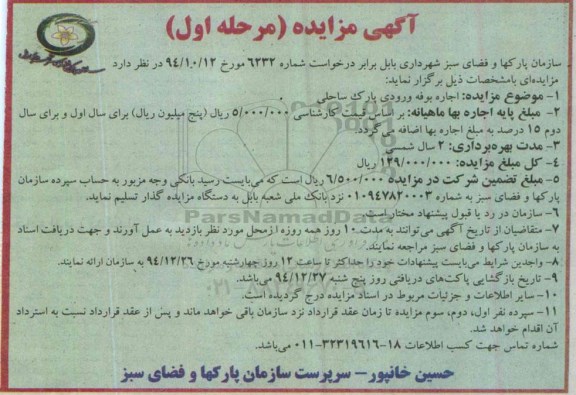 آگهی مزایده (مرحله اول)
سازمان پارکها و فضای سبز شهرداری بابل برابر درخواست شماره ۶۲۳۲ مورخ ۹۴/۱۰/۱۲ در نظر دارد
مزایده‌ای بامشخصات ذیل برگزار نماید:
۱- موضوع مزایده: اجاره بوفه ورودی پارک ساحلی
۲- مبلغ پایه اجاره بها ماهیانه: بر اساس قیمت کارشناسی ۵/۰۰۰/۰۰۰ ریال (پنج میلیون ریال) برای سال اول و برای سال
دوم ۱۵ درصد به مبلغ اجاره بها اضافه می‌گردد.
۳- مدت بهره‌برداری: ۲ سال شمسی
۴- کل مبلغ مزایده: ۱۲۹/۰۰۰/۰۰۰ ریال
۵- مبلغ تضمین شرکت در مزایده ۶/۵۰۰/۰۰۰ ریال است که می‌بایست رسید بانکی وجه مزبور به حساب سپرده سازمان
پارکها و فضای سبز به شماره ۰۱۰۹۴۷۸۲۰۰۰۳ نزد بانک ملی شعبه بابل به دستگاه مزایده گذار تسلیم نماید.
ParsNamadData
۶- سازمان در رد یا قبول پیشنهاد مختار است.
۷- متقاضیان از تاریخ آگهی می‌توانند به مدت ۱۰ روز همه روزه از محل مورد نظر بازدید به عمل آورند و جهت دریافت اسناد
به سازمان پارکها و فضای سبز مراجعه نمایند.
۸- واجدین شرایط می‌بایست پیشنهادات خود را حداکثر تا ساعت ۱۲ روز چهارشنبه مورخ ۹۴/۱۲/۲۶ به سازمان ارائه نمایند.
۹- تاریخ بازگشایی پاکت‌های دریافتی روز پنج شنبه ۹۴/۱۲/۲۷ می‌باشد.
۱۰- سایر اطلاعات و جزئیات مربوط در اسناد مزایده درج گردیده است.
۱۱- سپرده نفر اول، دوم، سوم مزایده تا زمان عقد قرارداد نزد سازمان باقی خواهد ماند و پس از عقد قرارداد نسبت به استرداد
آن اقدام خواهد شد.
شماره تماس جهت کسب اطلاعات ۱۸-۳۲۳۱۹۶۱۶-۰۱۱ می‌باشد.
حسین خانپور - سرپرست سازمان پارکها و فضای سبز